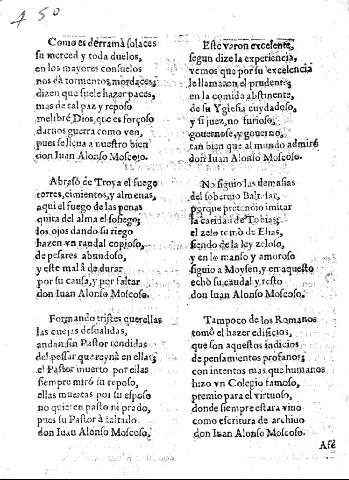 450
Como es derramà solaces
su merced y toda duelos,
en los mayores consuelos
nos dà tormentos mordaces,
dizen que suele hazer paces,
mas de tal paz y reposo
me libre Dios, que es forçoso
darnos guerra como ven,
pues se lleua a nuestro bien
don Iuan Alonso Moscoso.
Abrasò de Troya el fuego
torres, cimientos, y almenas,
aqui el fuego de las penas
quita del alma el sosiego;
los ojos dando su riego
hazen vn raudal copioso,
de pesares abundoso,
y este mal à de durar
por su causa, y por faltar
don Iuan Alonso Moscoso.
Formando tristes querellas
las ouejas desualidas,
andan sin Pastor rendidas
del pessar que reyna en ellas;
el Pastor muerto por ellas
siempre mirò su reposo,
ellas muertas por su esposo
no quieren pasto ni prado,
pues su Pastor à faltado
don Iuan Alonso Moscoso.
Este varon excelente,
segun dize la experiencia,
vemos que por su excelencia
le llamaron el prudente;
en la comida abstinente,
de su Yglesia cuydadoso,
y si juez, no furioso,
gouernose, y gouerno,
tan bien que al mundo admirò
don Iuan Alonso Moscoso.
No siguio las demasias
del soberuio Baltasar,
porque pretendio imitar
la caridad de Tobias;
el zelo tomò de Elias,
siendo de la ley zeloso,
y en lo manso y amoroso
siguio a Moysen, y en aquesto
echò su caudal y resto
don Iuan Alonso Moscoso.
Tampoco de los Romanos
tomò el hazer edificios,
que son aquestos indicios
de pensamientos profanos;
con intentos mas que humanos
hizo vn Colegio famoso,
premio para el virtuoso,
donde siempre estara viuo
como escritura de archiuo
don Iuan Alonso Moscoso.